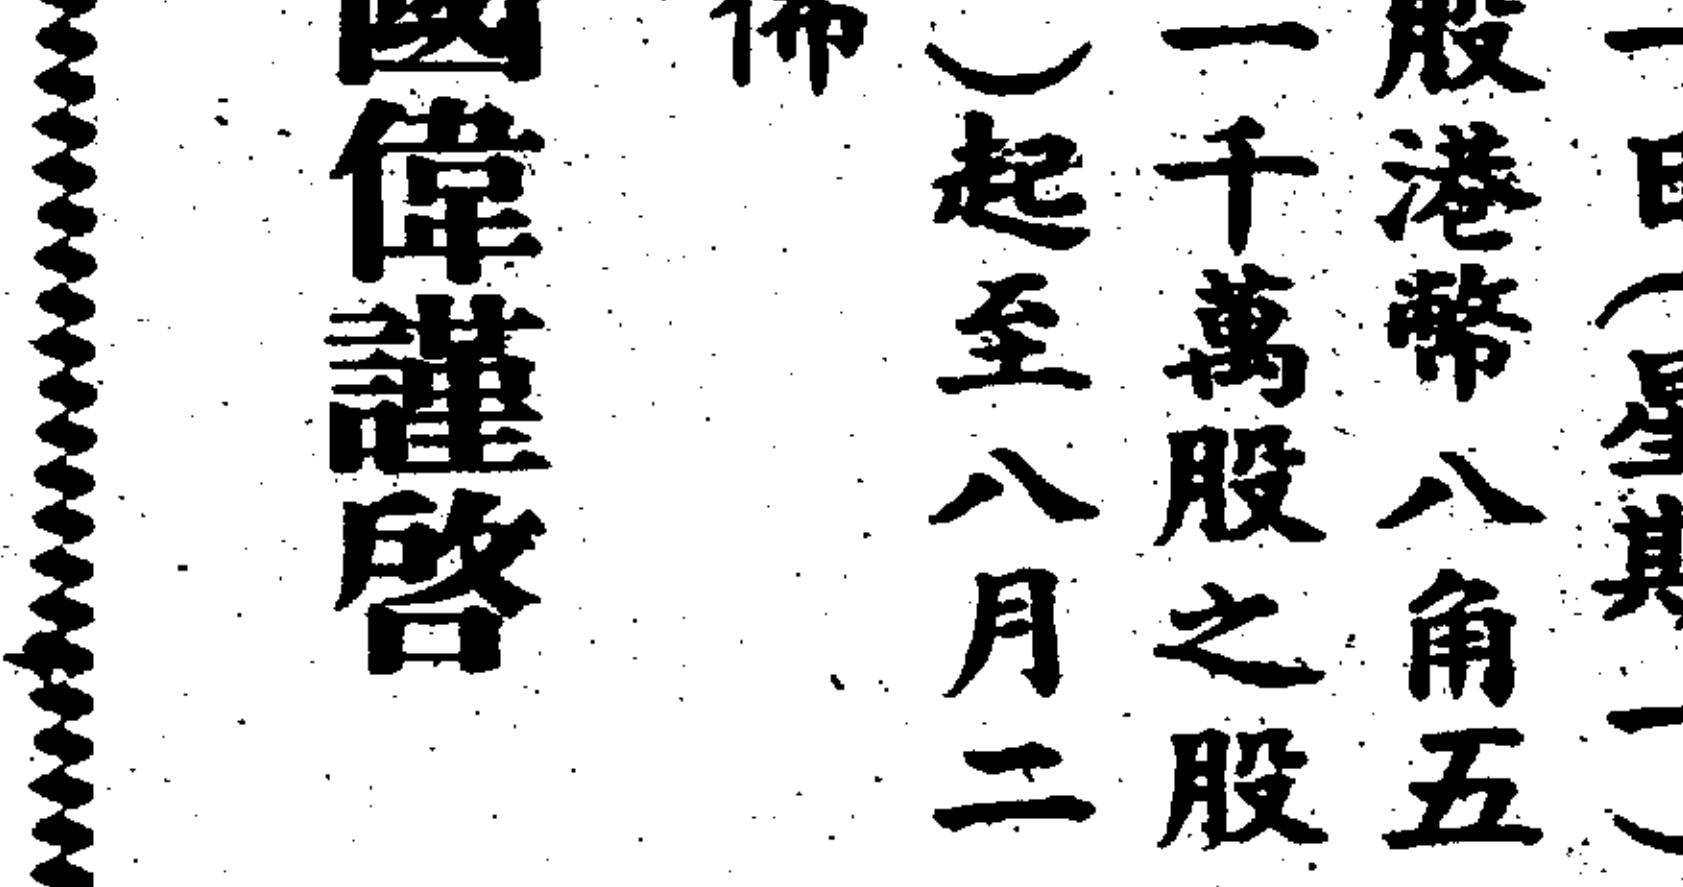 一日(星期一)
股港幣八角五
一千萬股之股
)起至八月二
佈
國偉謹啓